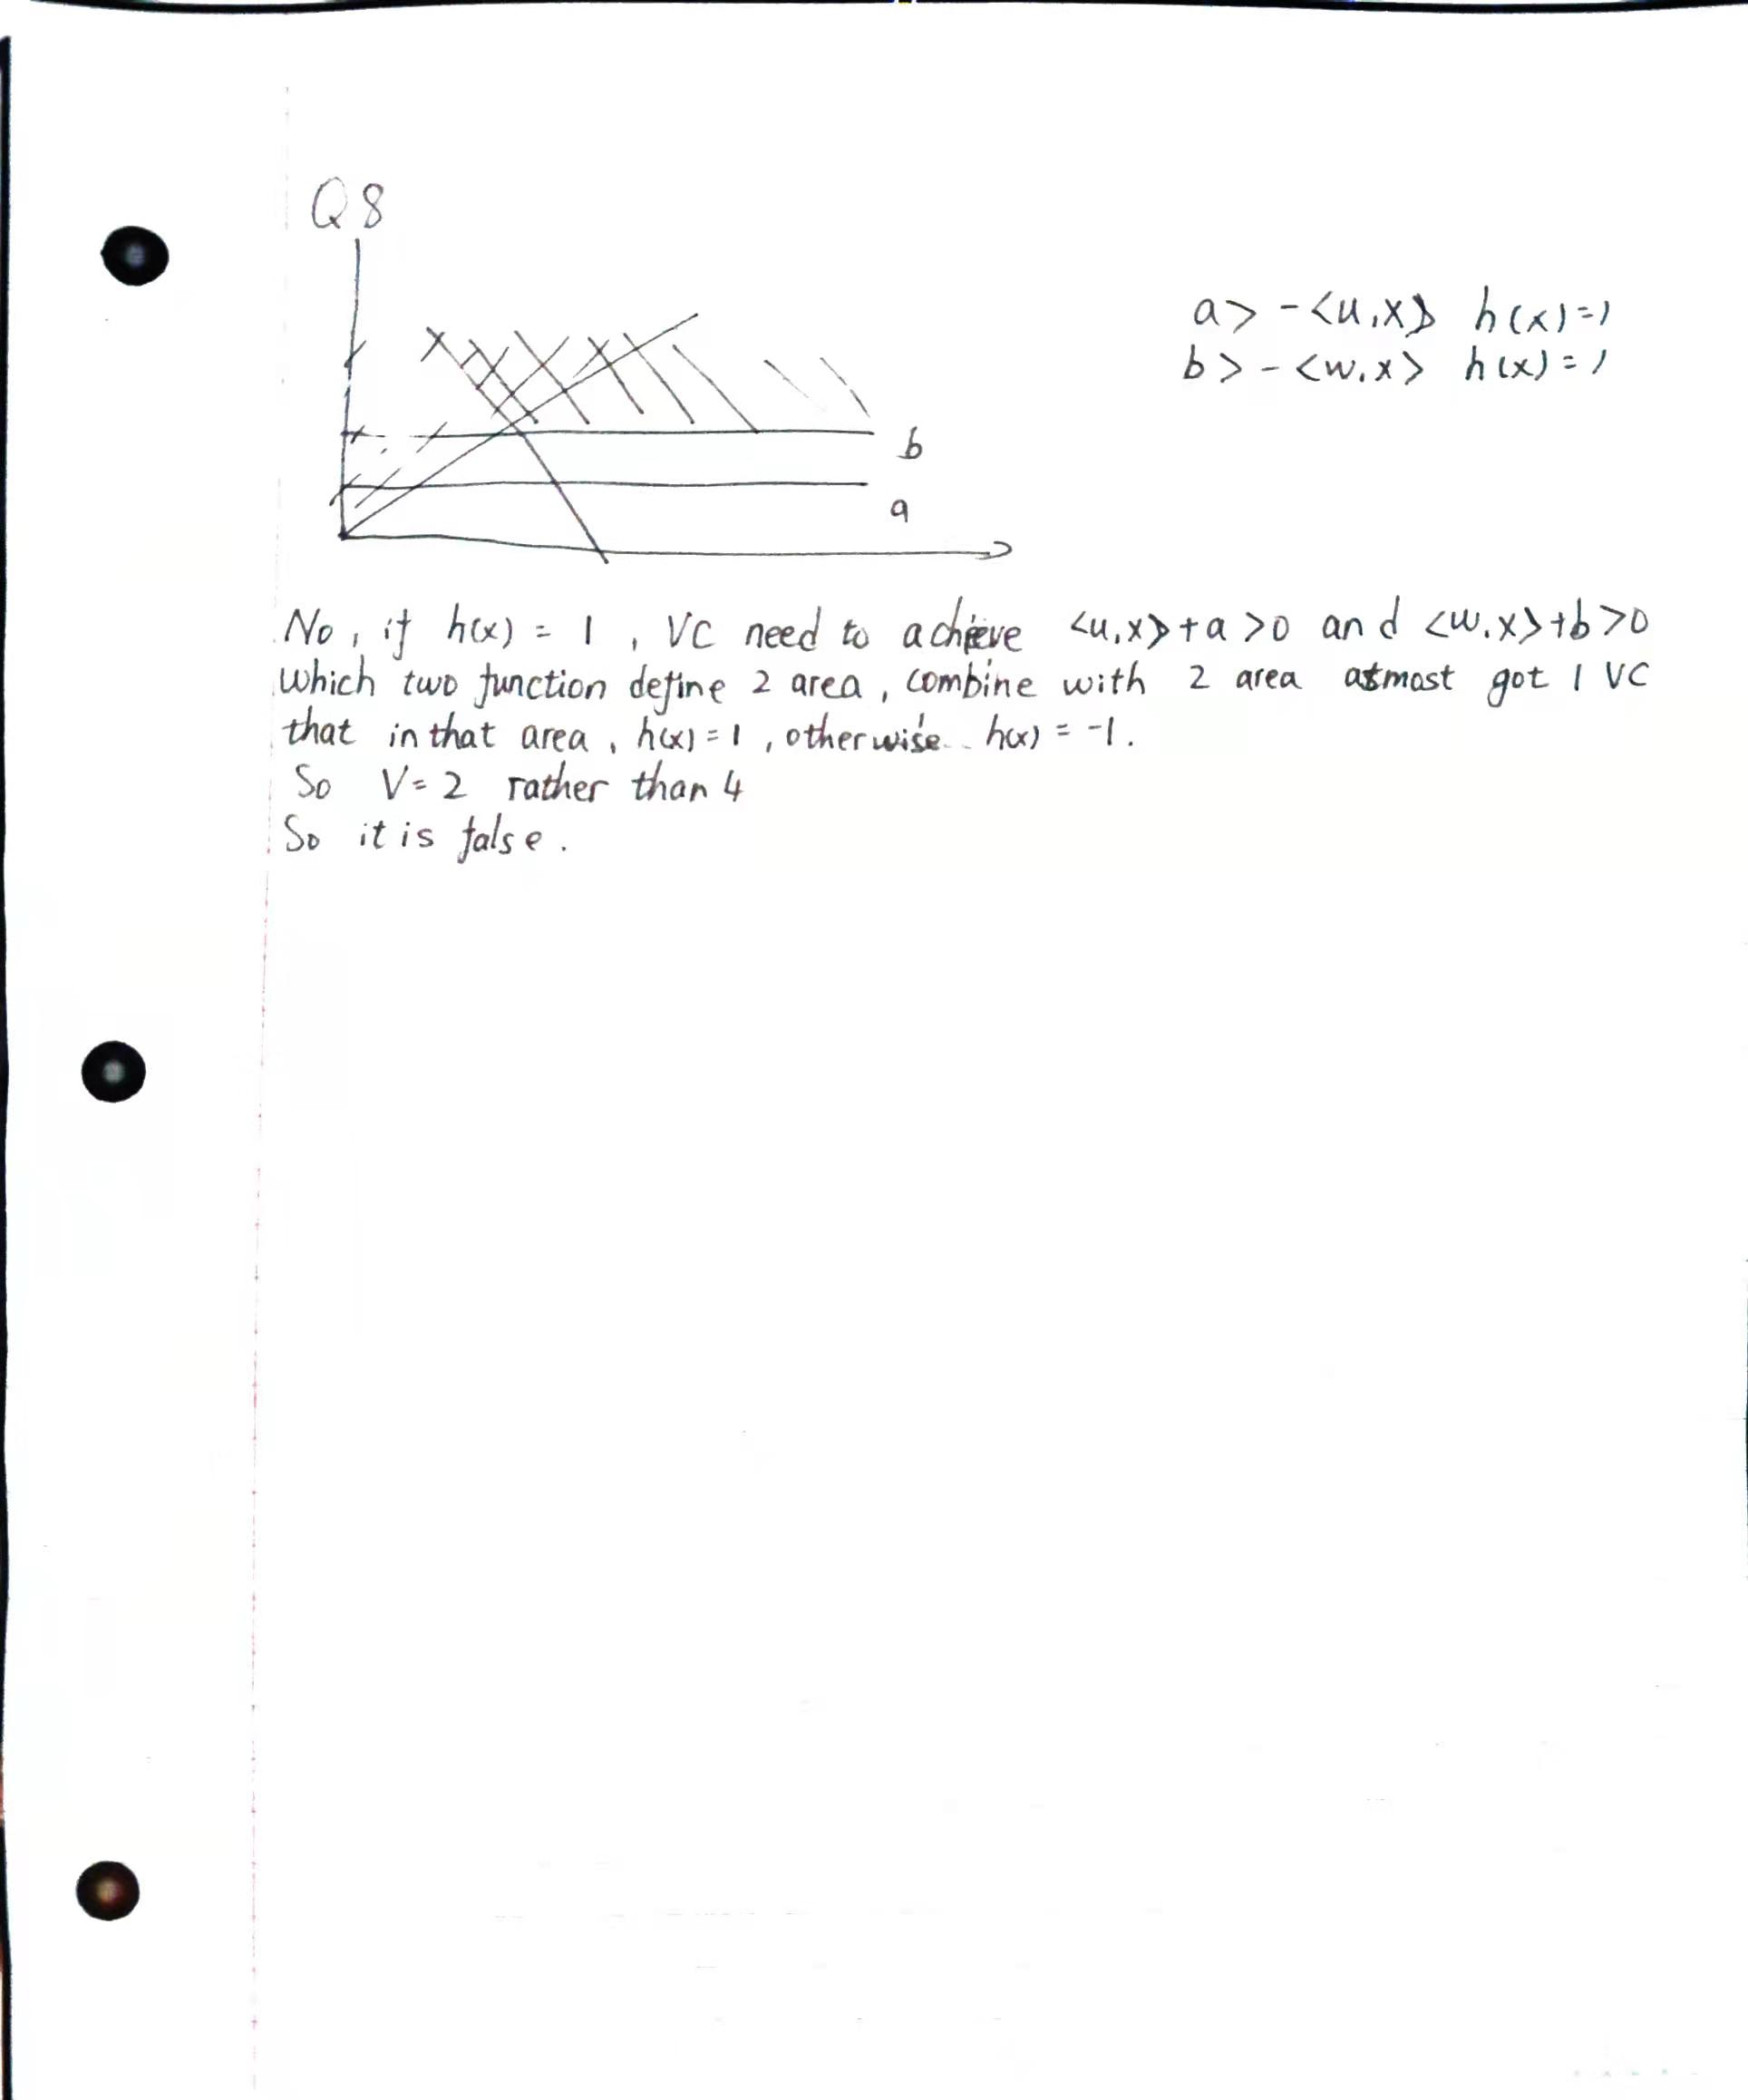 Q8
a> -<u,x> h(x)=1
b> -<w.x> h(x)=1
b
a
No, if h(x) = 1, VC need to achieve <u,x>+a>0 and <w.x>+b>0
which two function define 2 area, combine with 2 area atmost got 1 VC
that in that area, h(x)=1, otherwise.. h(x) = -1.
So V=2 rather than 4
So it is false.